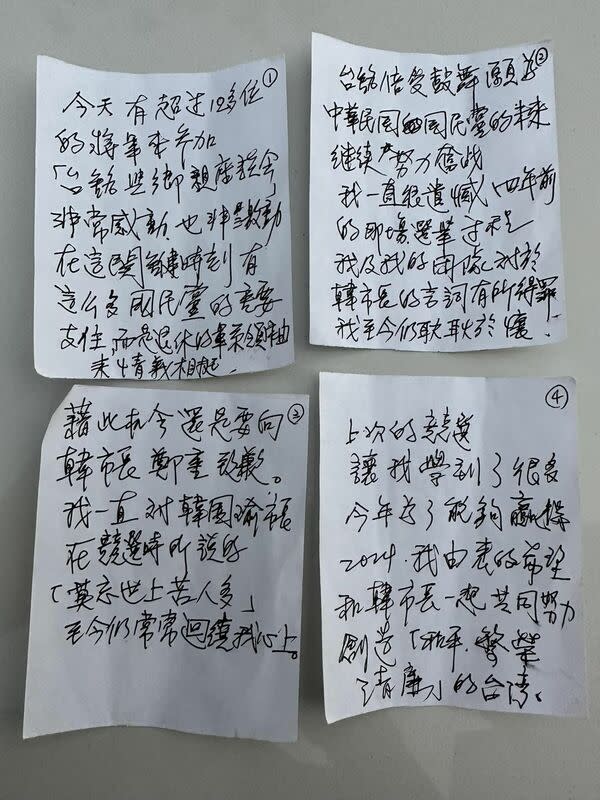 ①
今天有超过12多位
的將軍来参加
「台銘與鄉親座談会
非常感動、也非常激動
在這関鍵時刻有
這么多國民黨的重要
支住,而是退休的軍系領袖
来情義相挺.
②
台銘倍受鼓舞願为
中華民国 国民黨的未来
继续努力奮战
我一直很遺憾、四年前
的那場選举过程
我及我的团队对於
韓市長的言詞有所得罪
我至今仍耿耿於懷.
③
藉此机会還是要向
韓市長鄭重致歉。
我一直对韓国瑜市長
在競選時所說的
「莫忘世上苦人多」
至今仍常常迴繞我心上。
④
上次的競選
讓我學到了很多
今年为了能夠贏得
2024.我由衷的希望
和韓市長一起共同努力
創造「和平.繁榮
清廉」的台湾。